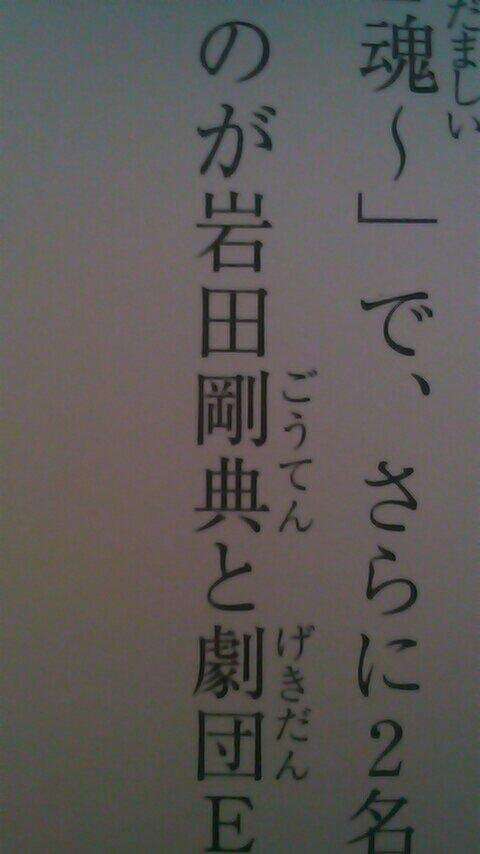 魂～」で、さらに2名
だましい
のが岩田剛典と劇団E
ごうてん
げきだん